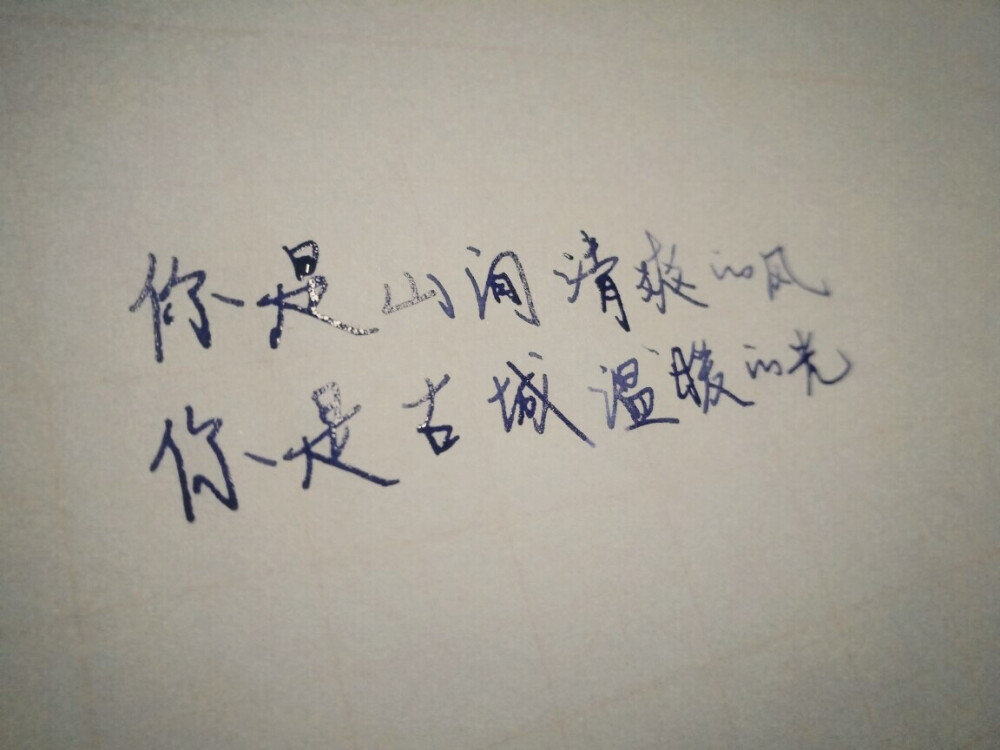 你是山间清爽的风
你是古城温暖的光